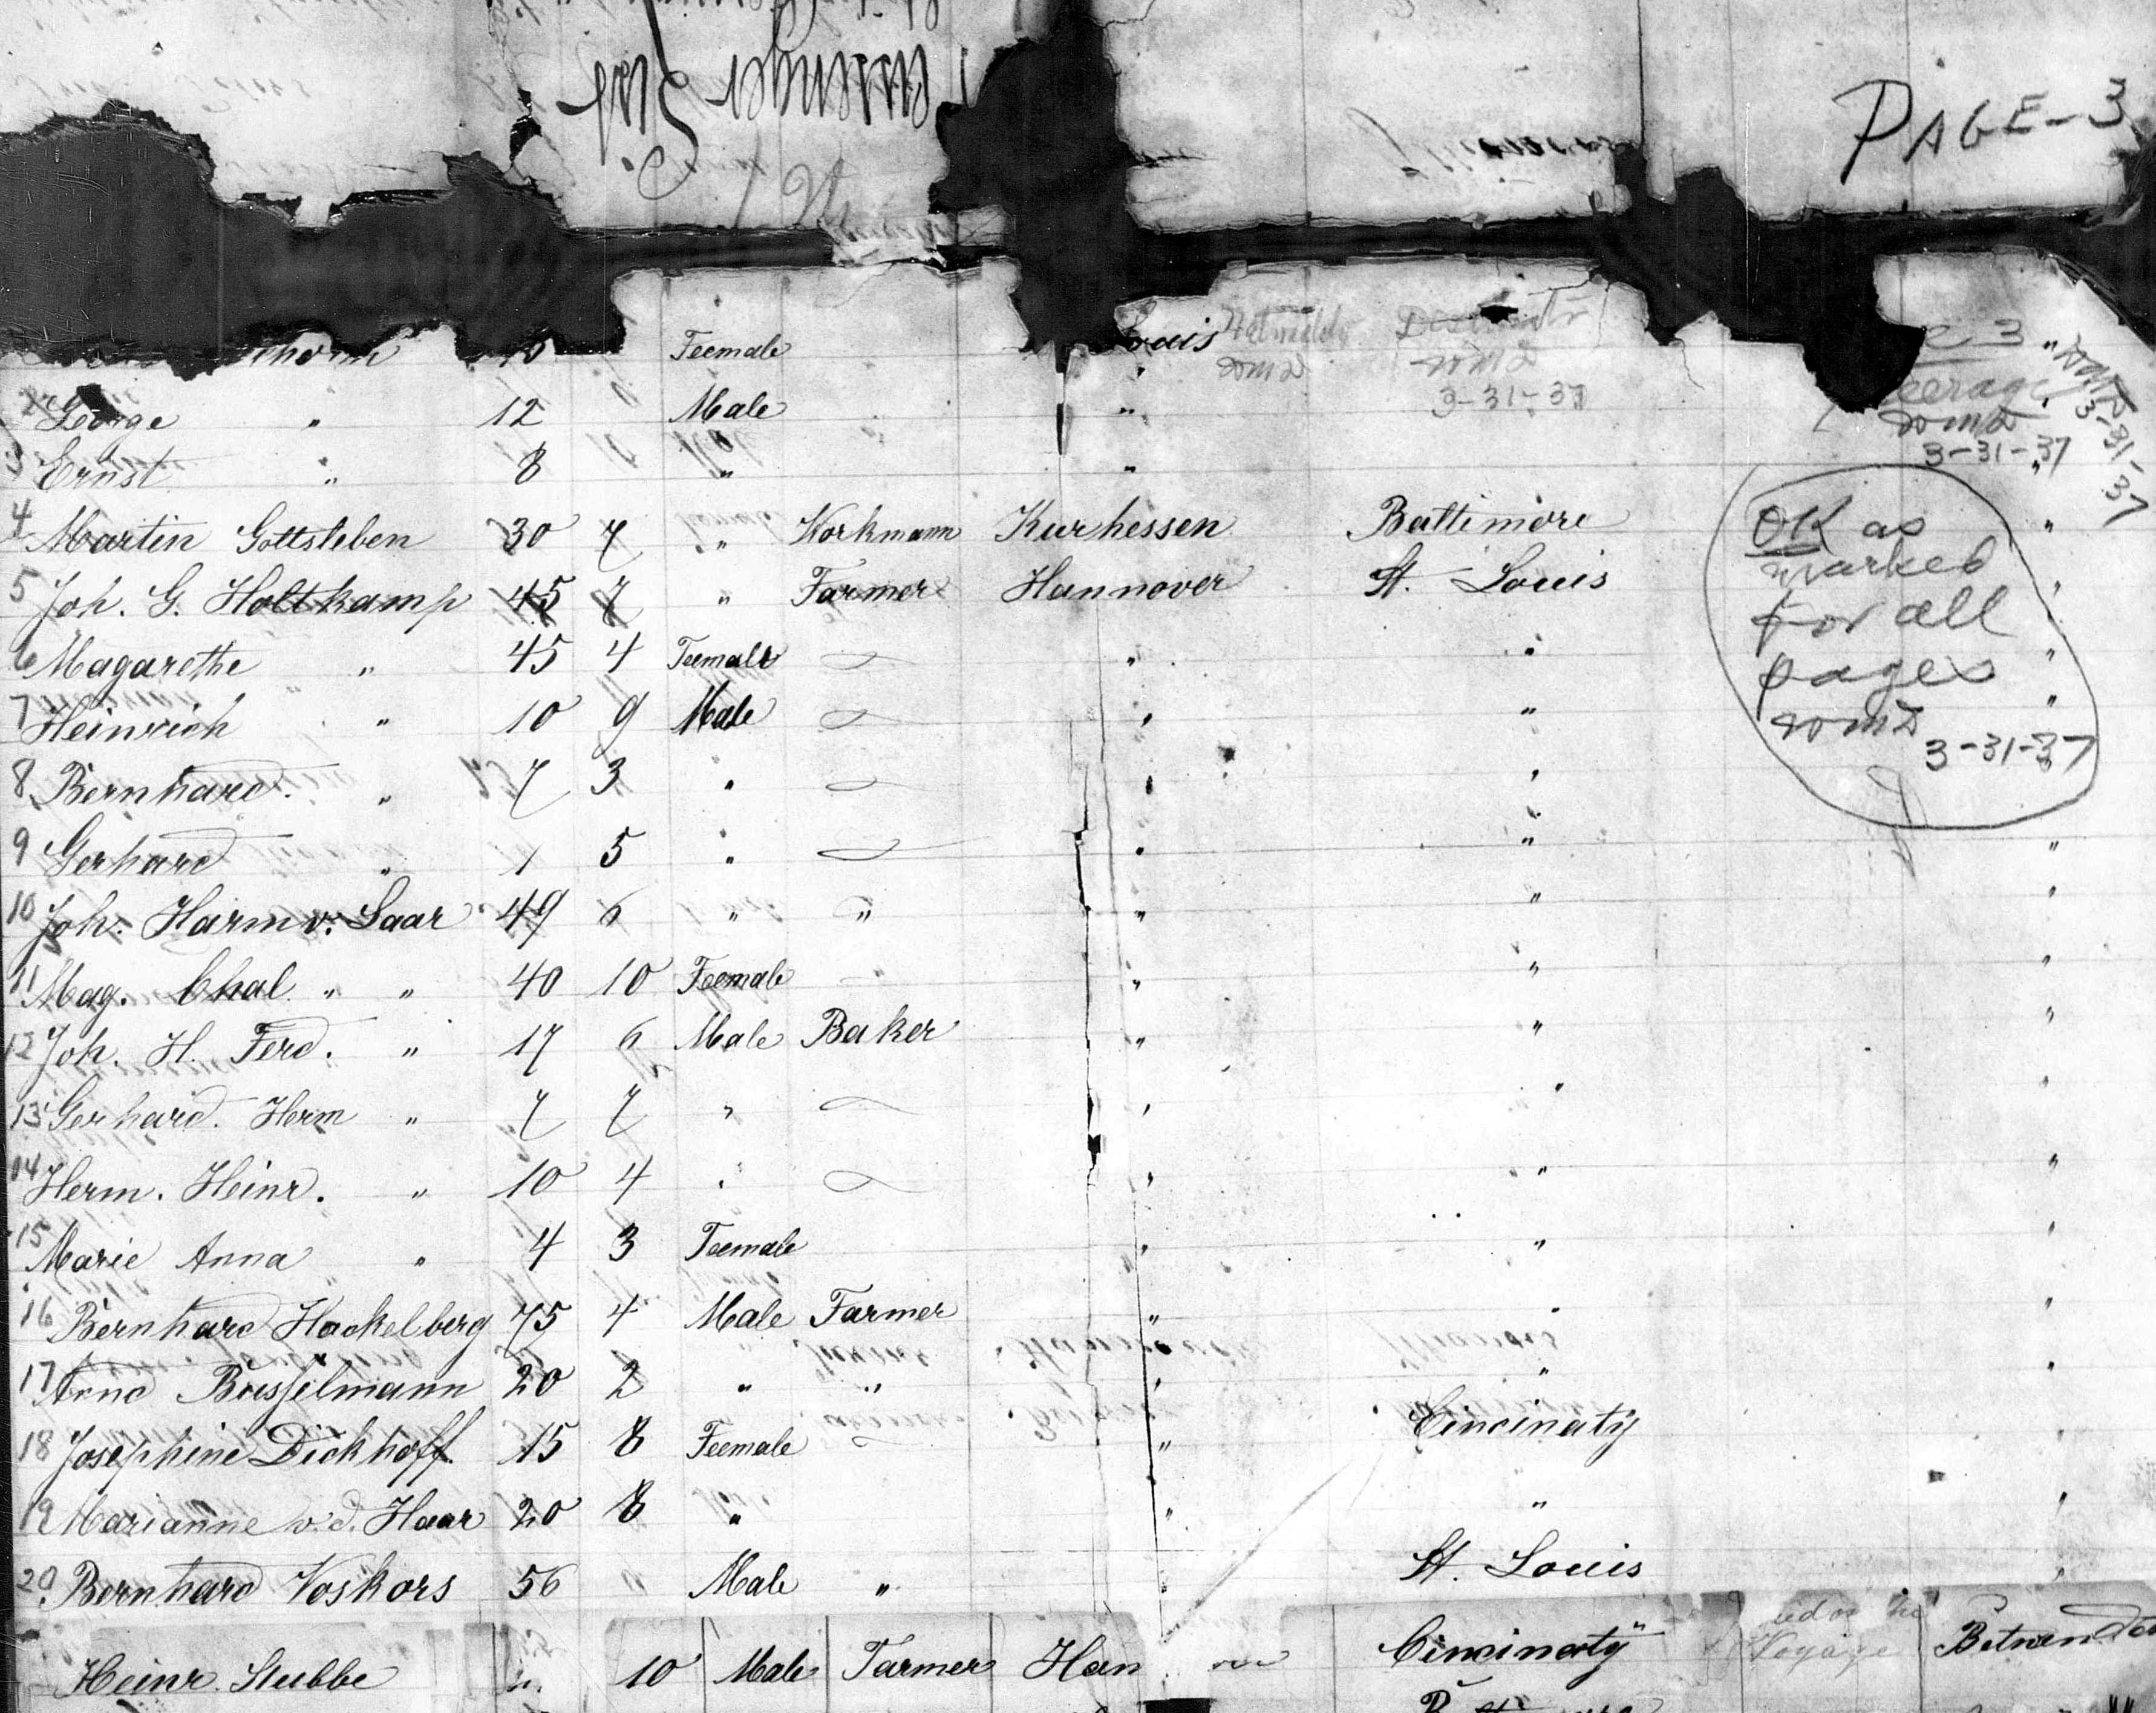 PAGE-3
Feemale Louis
2 George " 12 Male "
3 Ernst " 8 " "
4 Martin Gottsleben 30 7 " Workmann Kurhessen Baltimore "
5 Joh. G. Holtkamp 45 7 " Farmer Hannover St. Louis "
6 Magarethe " 45 4 Feemale " " "
7 Heinrich " 10 9 Male " " "
8 Bernhard. " 7 3 " " "
9 Gerhard " 1 5 " " " "
10 Joh. Harm v. Laar 49 6 " " " " "
11 Mag. Chal. " " 40 10 Feemale " " " "
12 Joh. H. Ferd. " 17 6 Male Baker " " "
13 Gerhard. Herm " 7 7 " " " "
14 Herm. Heinr. " 10 4 " " " "
15 Marie Anna " 4 3 Feemale " " "
16 Bernhard Hackelberg 75 4 Male Farmer " " "
17 Arnd Busselmann 20 2 " " " " "
18 Josephine Dickhoff 15 8 Feemale " Cincinaty "
19 Marianne v. d. Haar 20 8 " " " "
20 Bernhard Voskors 56 Male " " St. Louis "
Heinr. Stubbe 10 Male Farmer Han Cincinaty Voyage
3-31-37
3-31-37
3-31-37
OK as
marked
for all
pages
3-31-37